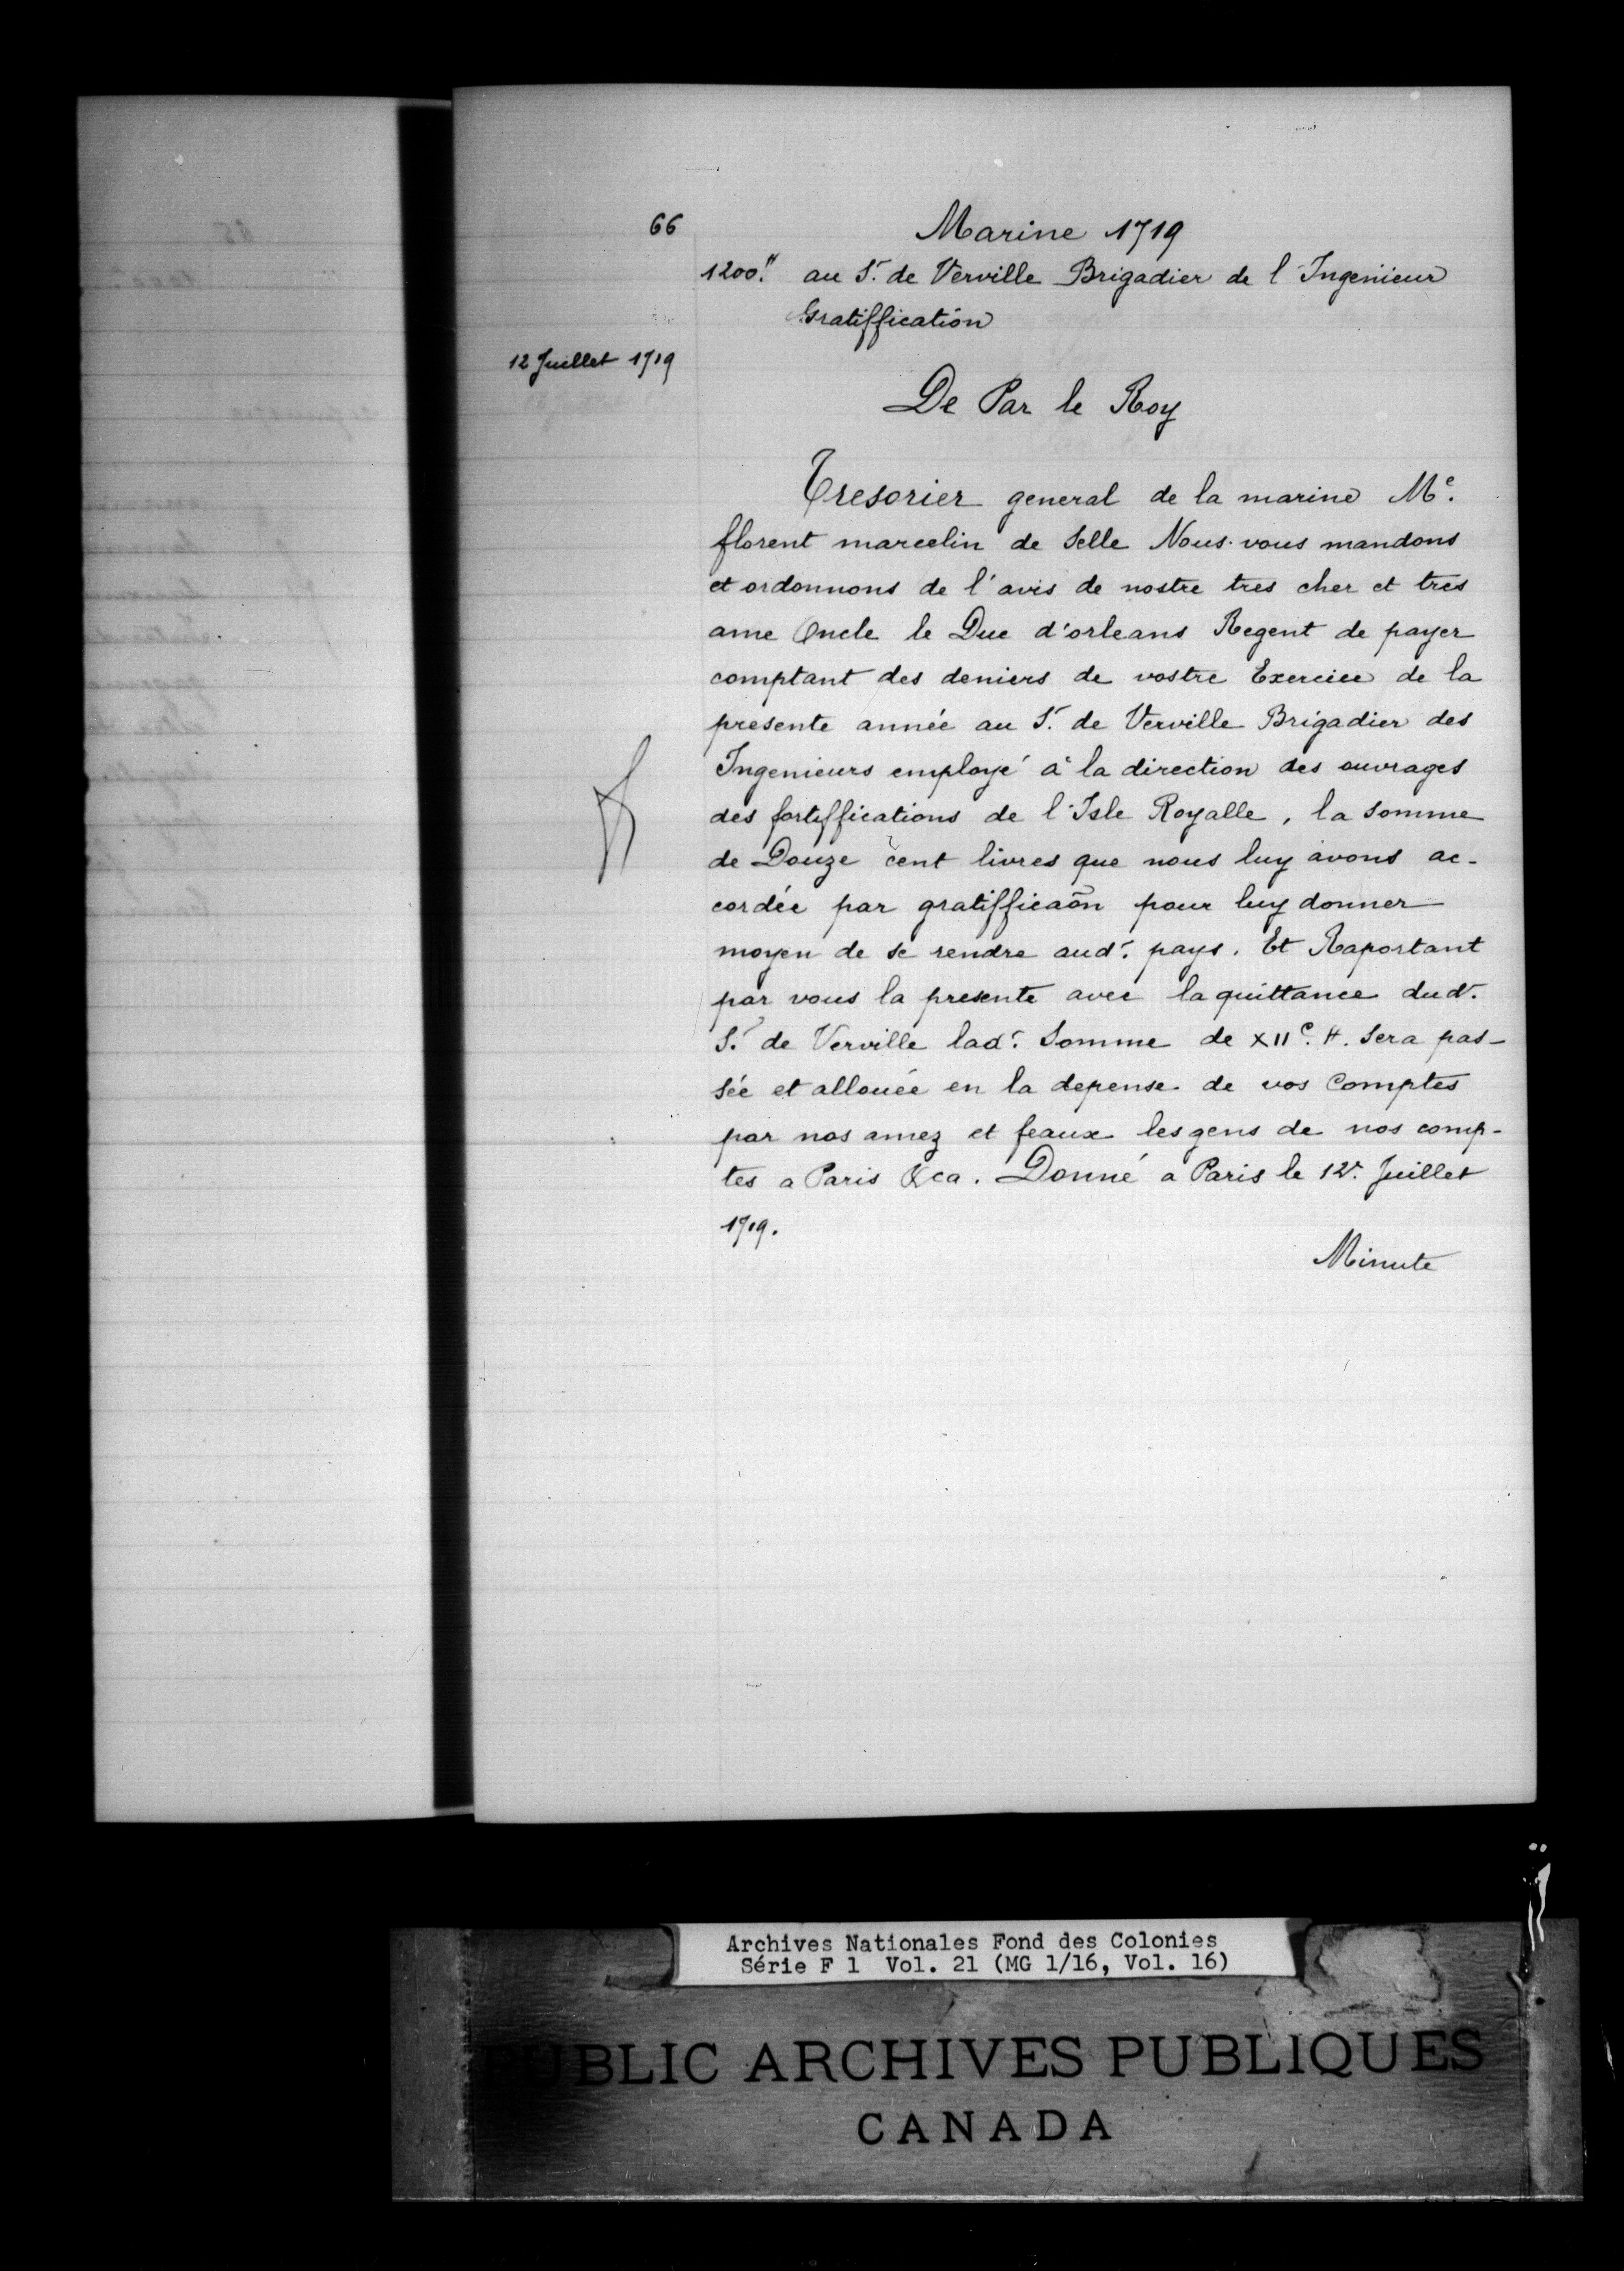 66
Marine 1719
1200.# au S.r de Verville Brigadier de l'Ingenieur
Gratiffication
12 Juillet 1719
De Par le Roy
Tresorier general de la marine M.e
florent marcelin de Selle Nous vous mandons
et ordonnons de l'avis de nostre tres cher et tres
ame Oncle le Duc d'orleans Regent de payer
comptant des deniers de vostre Exercice de la
presente année au S.r de Verville Brigadier des
Ingenieurs employé à la direction des ouvrages
des fortiffications de l'Isle Royalle, la somme
de Douze cent livres que nous luy avons ac-
cordée par gratifficaōn pour luy donner
moyen de se rendre aud.t pays. Et Raportant
par vous la presente avec la quittance dud.t
S.r de Verville lad.t Somme de XII.c #. Sera pas-
sée et allouée en la depense de vos Comptes
par nos amez et feaux les gens de nos comp-
tes a Paris &ca. Donné a Paris le 12.e Juillet
1719.
Minute
Archives Nationales Fond des Colonies
Série F 1 Vol. 21 (MG 1/16, Vol. 16)
PUBLIC ARCHIVES PUBLIQUES
CANADA